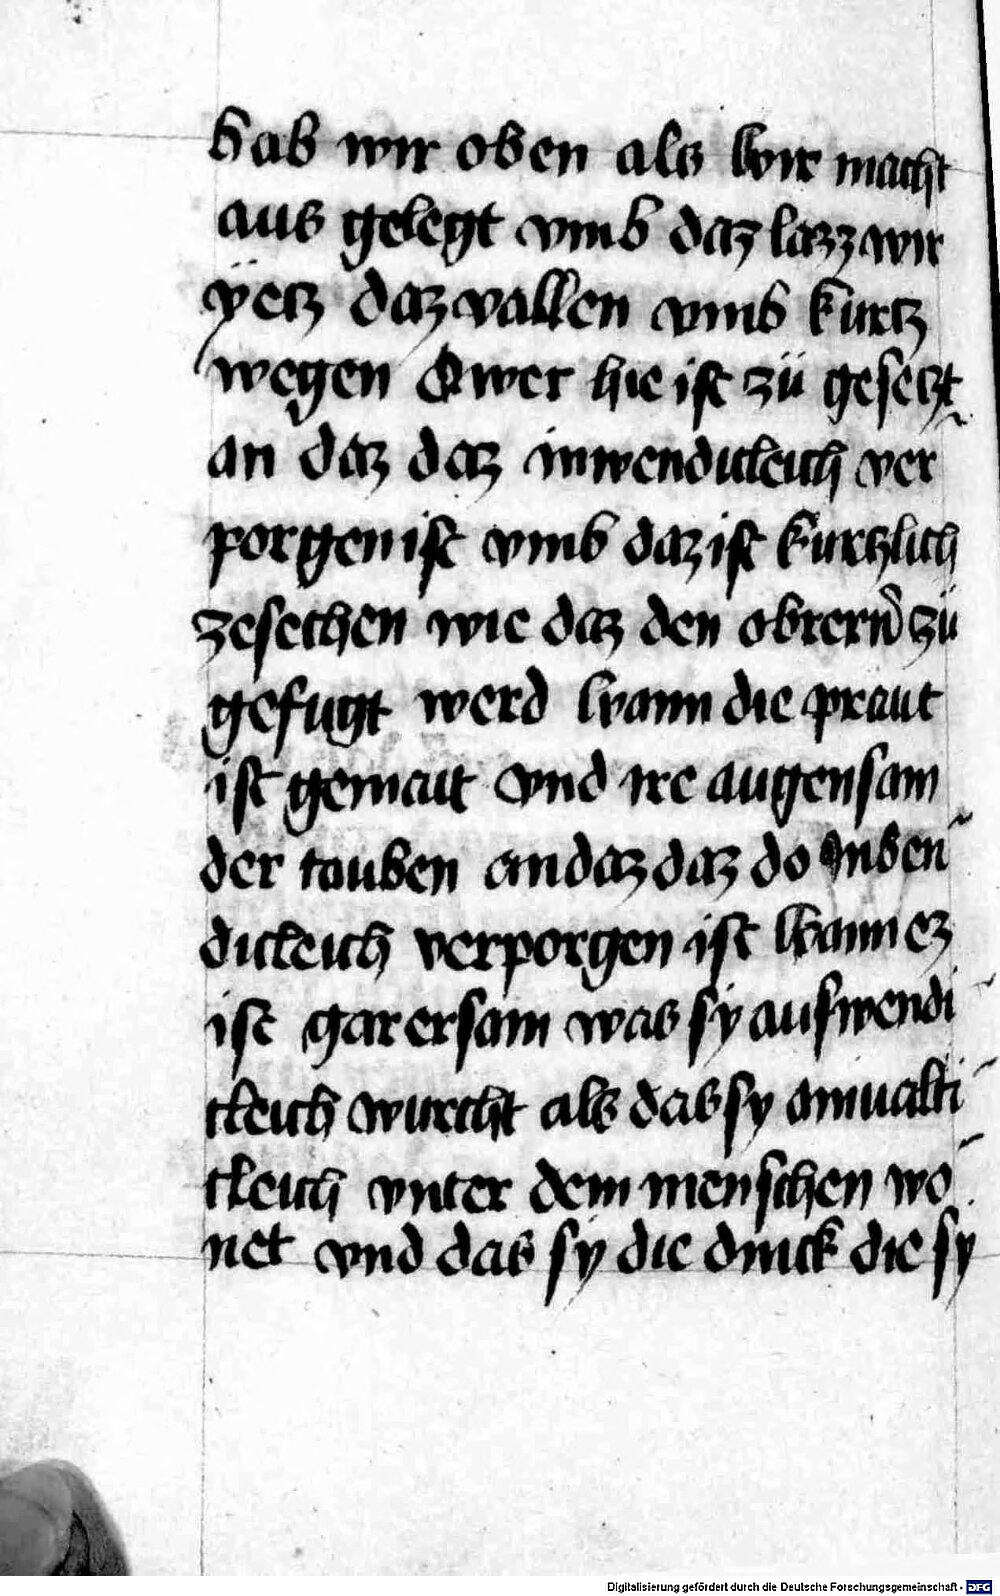 hab wir oben als wir macht
aus gelegt vmb daz lazz wir
ÿetz daz vallen vmb kurtz
wegen Awer hie ist zü gesetzt
an daz daz inwendicleich ver
porgen ist vmb daz ist kurtzlich
zesechen wie daz den obrern zü
gefugt werd wann die praut
ist gemait vnd ire augen sam
der tauben an daz daz do inben
dicleich verporgen ist wann ez
ist gar ersam was sy auswendi
cleich wurcht als das sy ainualti
cleich vnter dem menschen wo
net vnd das sy die dinck die sy
Digitalisierung gefördert durch die Deutsche Forschungsgemeinschaft - DFG